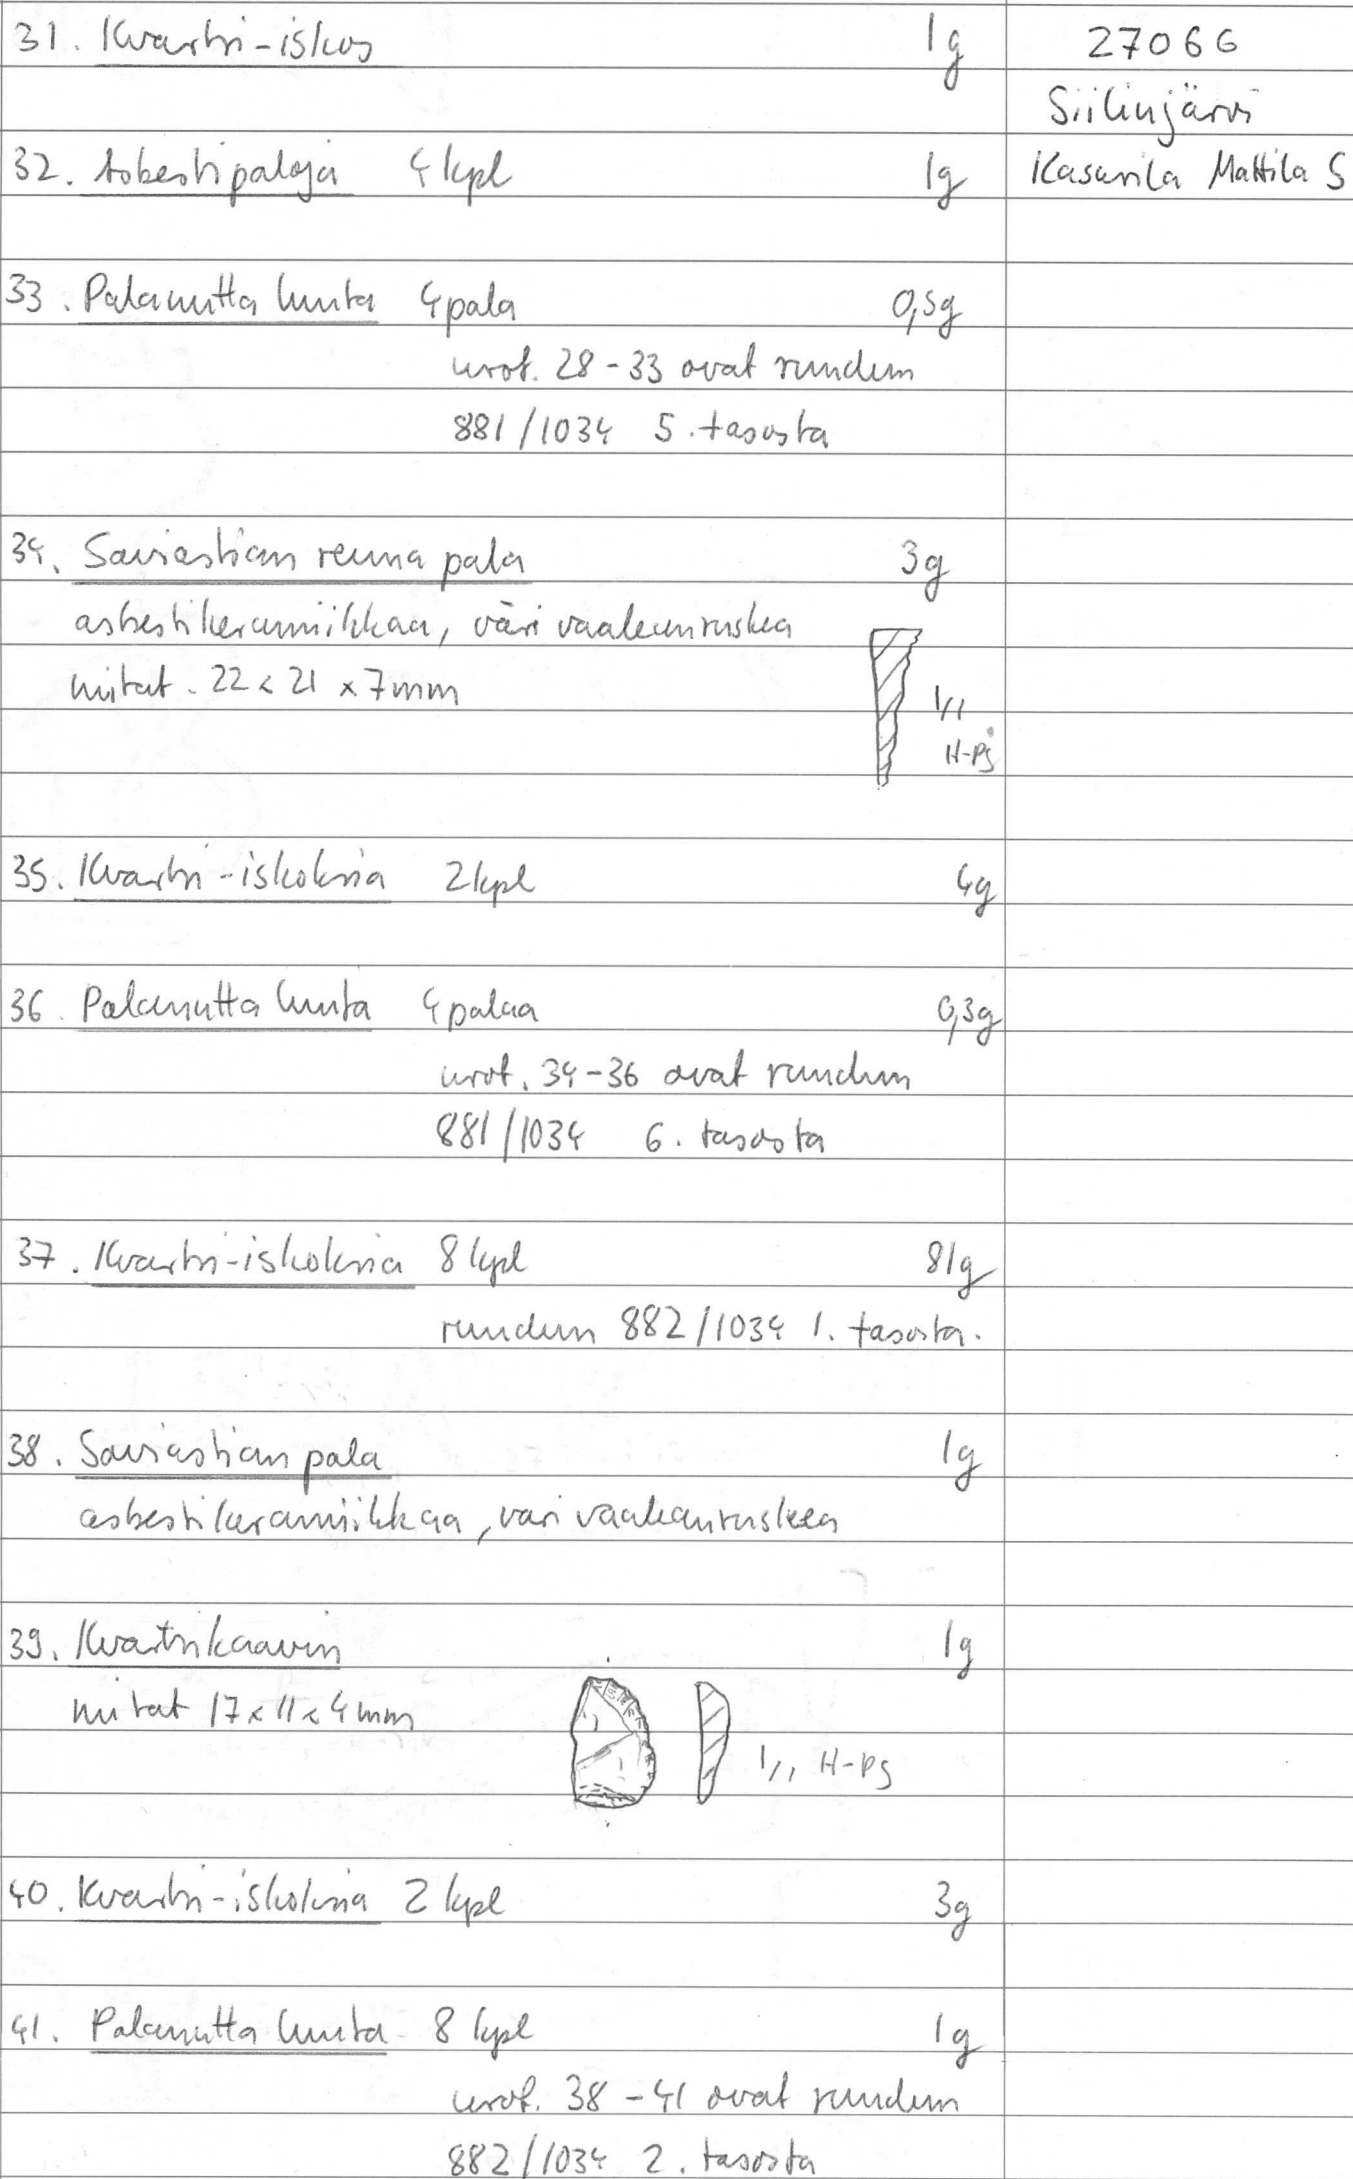 31. Kvartsi-iskos 1g 27066
Siilinjärvi
32. Asbestipaloja 4 kpl 1g Kasurila Mattila S
33. Palanutta luuta 4 pala 0,5g
nrot. 28-33 ovat ruudun
881/1034 5. tasosta
34. Saviastian reuna pala 3g
asbestikeramiikkaa, väri vaaleanruskea
mitat. 22 x 21 x 7mm
1/1
H-Pj
35. Kvartsi-iskoksia 2 kpl 4g
36. Palanutta luuta 4 palaa 0,3g
nrot. 34-36 ovat ruudun
881/1034 6. tasosta
37. Kvartsi-iskoksia 8 kpl 81g
ruudun 882/1034 1. tasosta.
38. Saviastian pala 1g
asbestikeramiikkaa, vari vaaleanruskea
39. Kvartsikaavin 1g
mitat 17 x 11 x 4 mm
1/1 H-Pj
40. Kvartsi-iskoksia 2 kpl 3g
41. Palanutta luuta 8 kpl 1g
nrot. 38-41 ovat ruudun
882/1034 2. tasosta